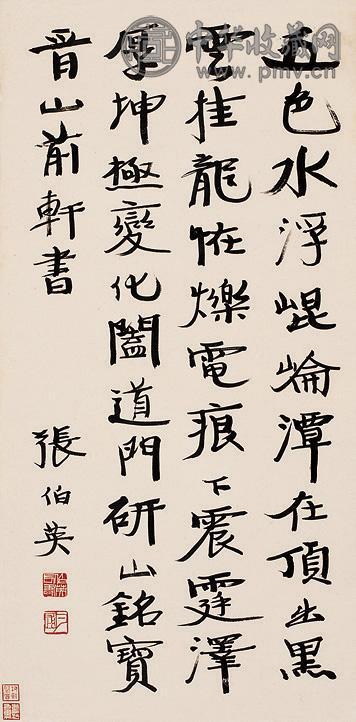 中华收藏网
www.pmv.cn
五色水浮崐崘潭在頂出黑
雲挂龍恠爍電痕下震霆澤
厚坤極變化闔道門研山銘寶
晉山前軒書
張伯英